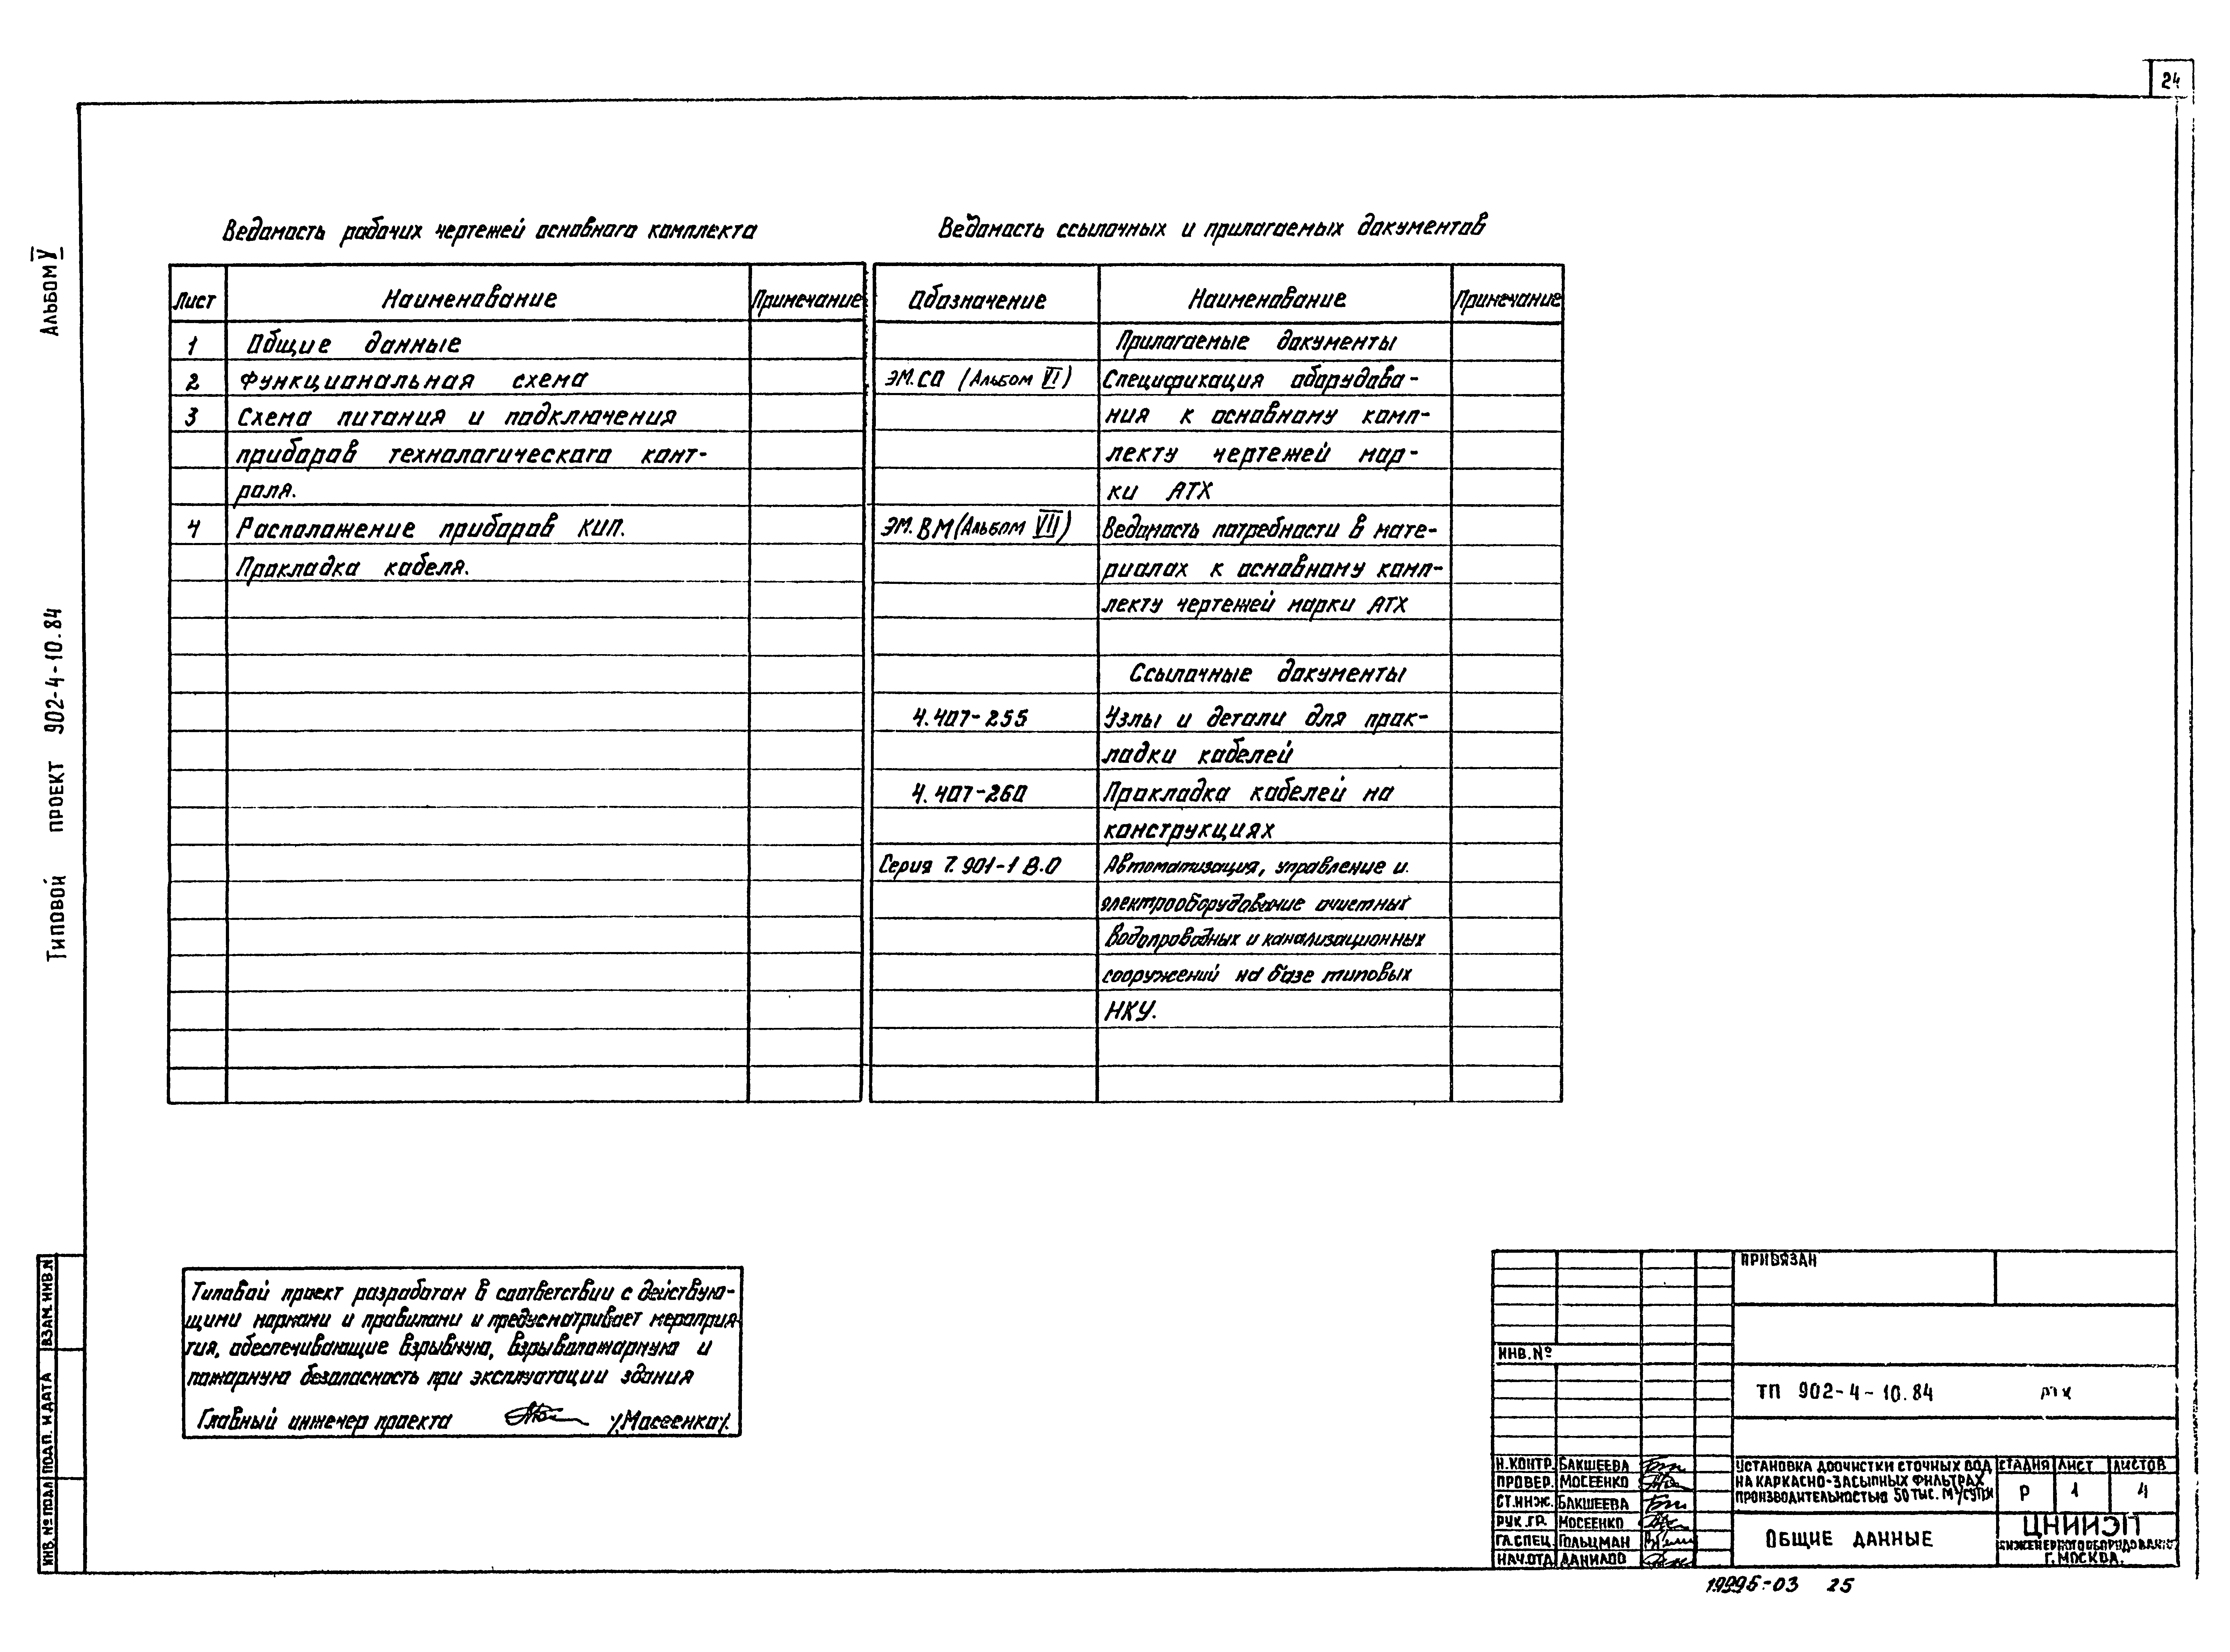 24
Альбом V
Типовой проект 902-4-10.84
Ведомость рабочих чертежей основного комплекта
Лист Наименование Примечание
1 Общие данные
2 Функциональная схема
3 Схема питания и подключения
приборов технологического конт-
роля.
4 Расположение приборов КИП.
Прокладка кабеля.
Ведомость ссылочных и прилагаемых документов
Обозначение Наименование Примечание
Прилагаемые документы
ЭМ.СО (Альбом VI) Спецификация оборудова-
ния к основному комп-
лекту чертежей мар-
ки АТХ
ЭМ.ВМ (Альбом VII) Ведомость потребности в мате-
риалах к основному комп-
лекту чертежей марки АТХ
Ссылочные документы
4.407-255 Узлы и детали для прок-
ладки кабелей
4.407-260 Прокладка кабелей на
конструкциях
Серия 7.901-1 В.0 Автоматизация, управление и
электрооборудование очистных
водопроводных и канализационных
сооружений на базе типовых
НКУ.
Типовой проект разработан в соответствии с действую-
щими нормами и правилами и предусматривает мероприя-
тия, обеспечивающие взрывную, взрывопожарную и
пожарную безопасность при эксплуатации здания
Главный инженер проекта /Мосеенко/.
ИНВ.№ ПОДЛ ПОДП. И ДАТА ВЗАМ. ИНВ.N
ПРИВЯЗАН
ИНВ.№
ТП 902-4-10.84 АТХ
Н.КОНТР. БАКШЕЕВА
ПРОВЕР. МОСЕЕНКО
СТ.ИНЖ. БАКШЕЕВА
РУК.ГР. МОСЕЕНКО
ГЛ.СПЕЦ. ГОЛЬЦМАН
НАЧ.ОТД ДАНИЛОВ
УСТАНОВКА ДООЧИСТКИ СТОЧНЫХ ВОД
НА КАРКАСНО-ЗАСЫПНЫХ ФИЛЬТРАХ
ПРОИЗВОДИТЕЛЬНОСТЬЮ 50 ТЫС. М³/СУТКИ
СТАДИЯ ЛИСТ ЛИСТОВ
Р 1 4
ОБЩИЕ ДАННЫЕ
ЦНИИЭП
ИНЖЕНЕРНОГО ОБОРУДОВАНИЯ
Г. МОСКВА.
19995-03 25